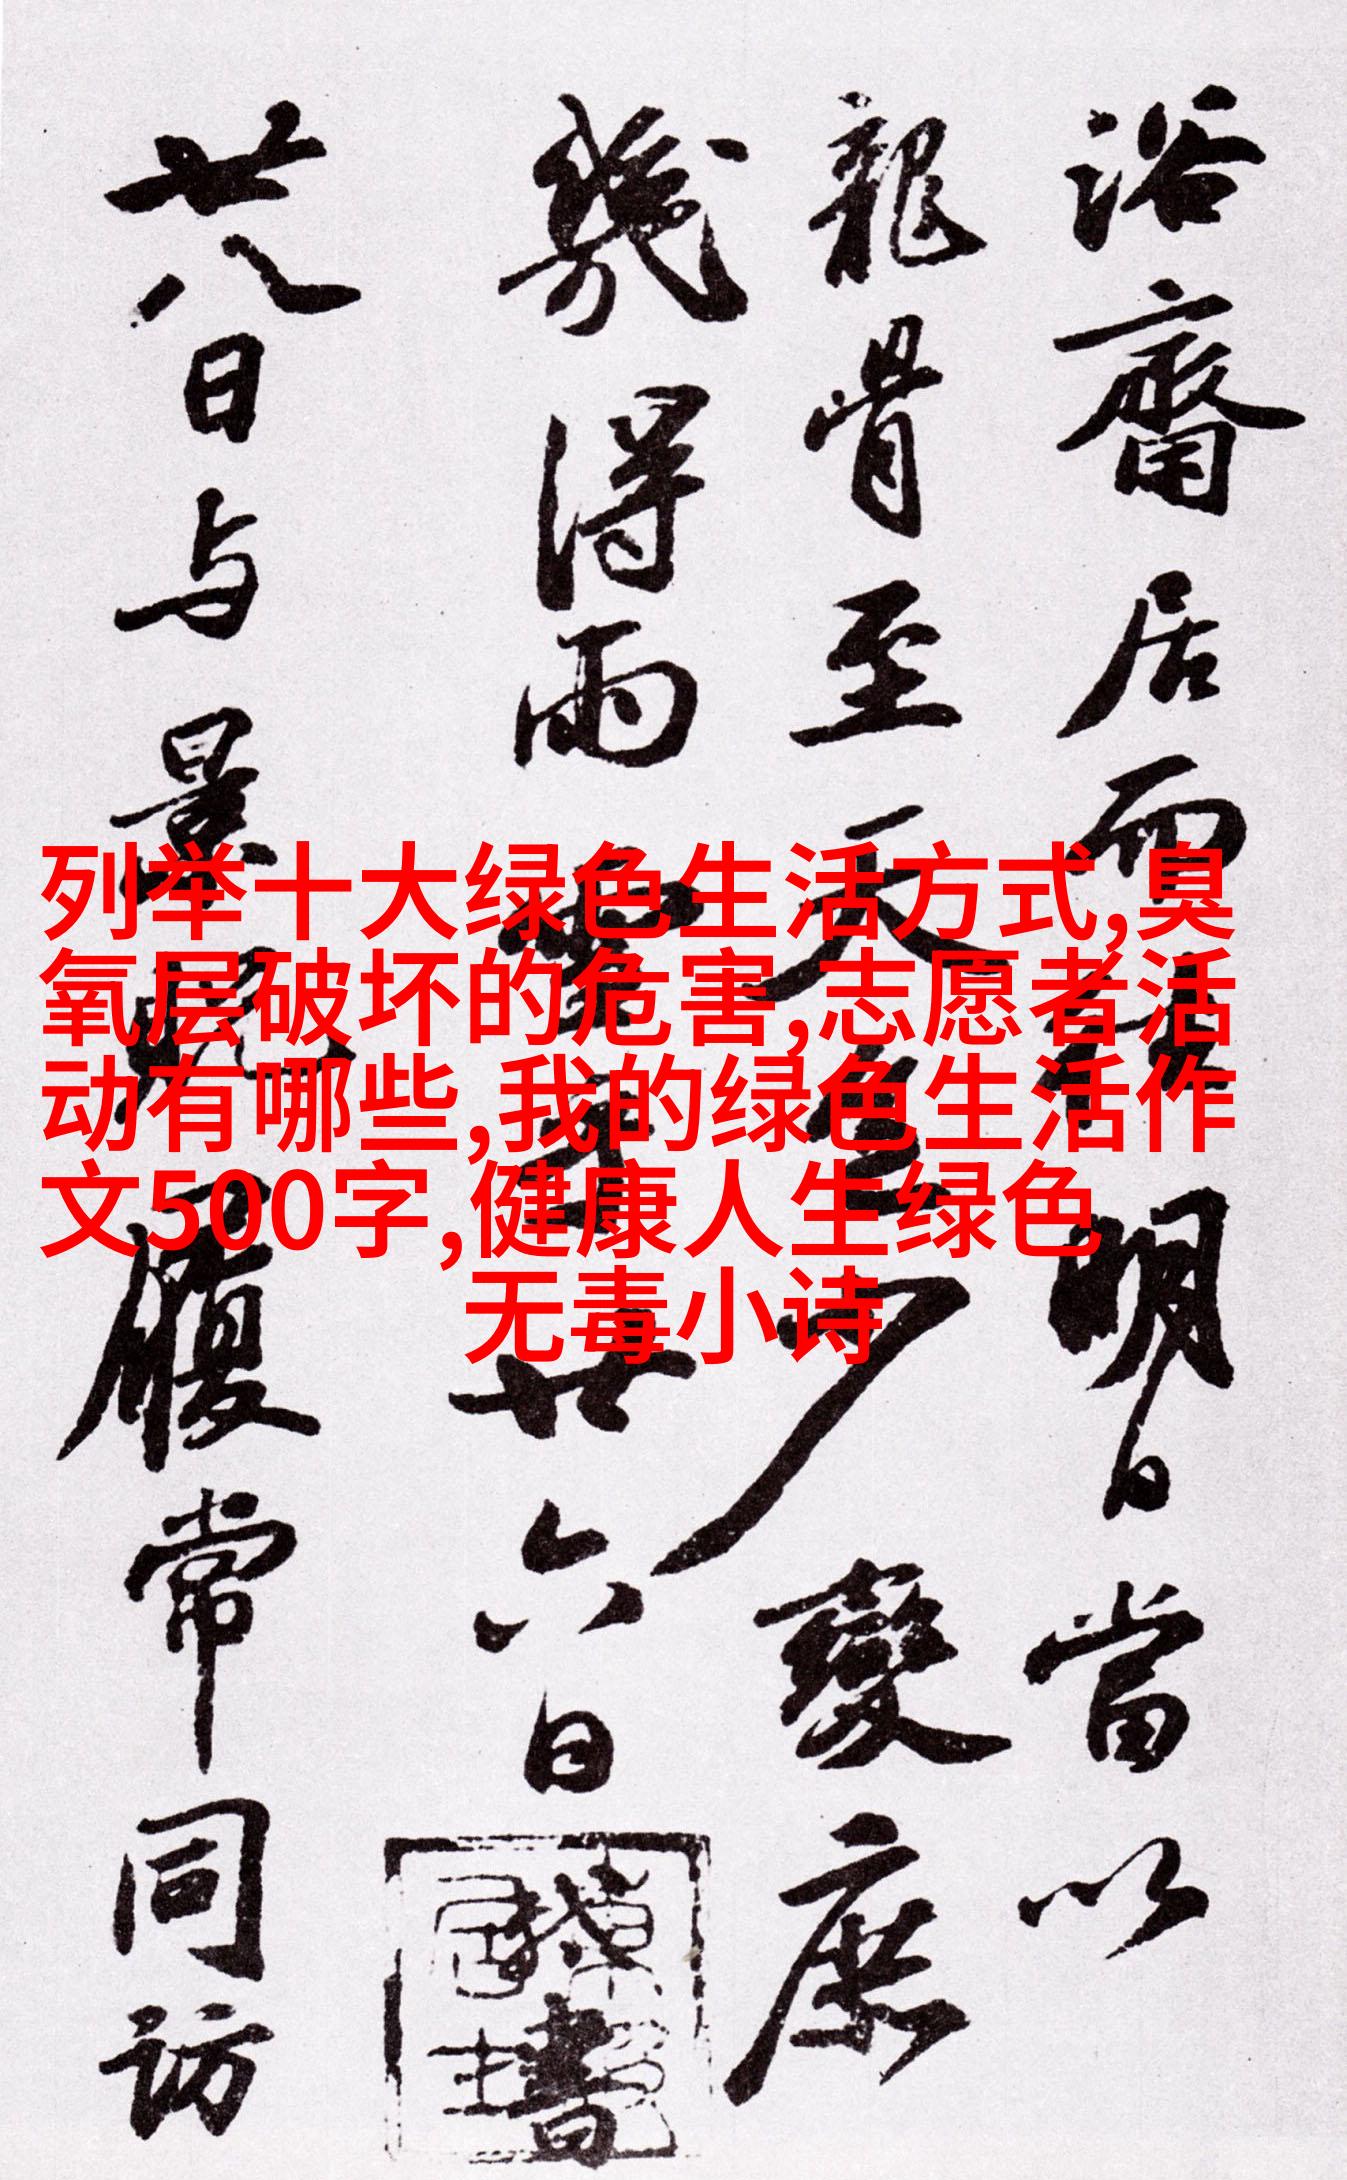 浴齋居而請明日當以
龍骨至天色少變庶
幾得雨
廿六日
書
廿八日与景貺履常同訪
列举十大绿色生活方式,臭
氧层破坏的危害,志愿者活
动有哪些,我的绿色生活作
文500字,健康人生绿色
无毒小诗